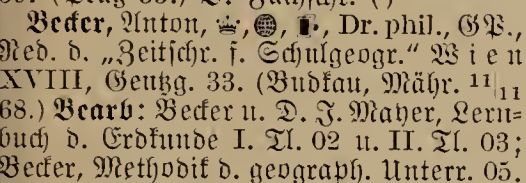 Becker, Anton, Dr. phil., GP.,
Red. d. „Zeitschr. f. Schulgeogr.“ Wien
XVIII, Gentzg. 33. (Budkau, Mähr. 11/11
68.) Bearb: Becker u. D. J. Mayer, Lern=
buch d. Erdkunde I. Tl. 02 u. II. Tl. 03;
Becker, Methodik d. geograph. Unterr. 05.